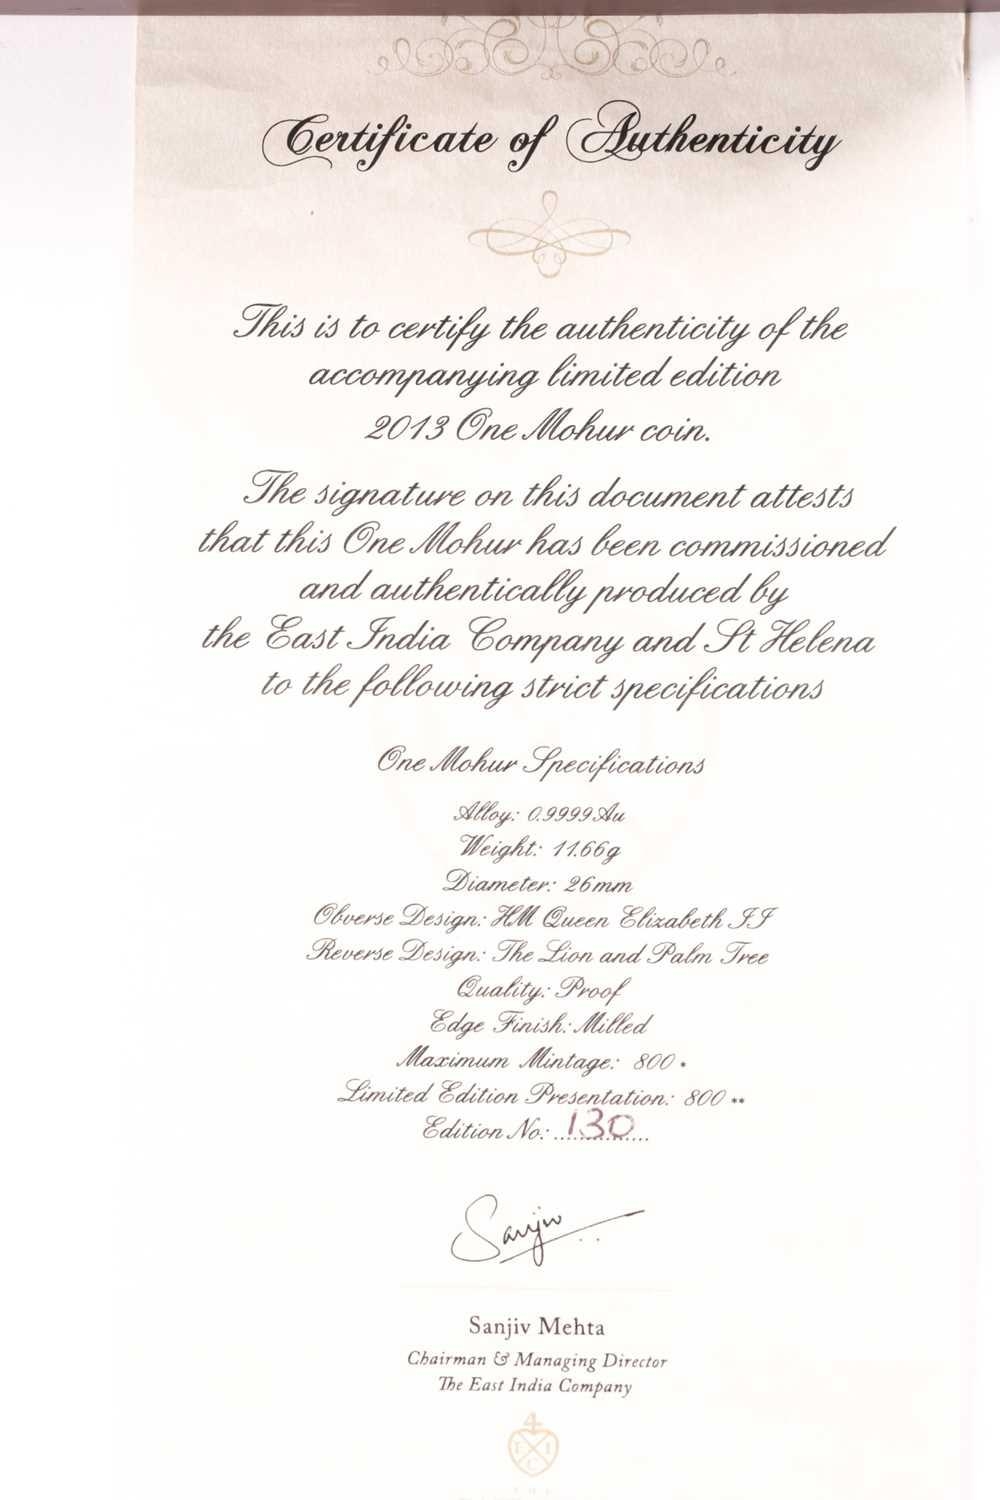 Certificate of Authenticity
This is to certify the authenticity of the
accompanying limited edition
2013 One Mohur coin.
The signature on this document attests
that this One Mohur has been commissioned
and authentically produced by
the East India Company and St Helena
to the following strict specifications
One Mohur Specifications
Alloy: 0.9999Au
Weight: 11.66g
Diameter: 26mm
Obverse Design: HM Queen Elizabeth II
Reverse Design: The Lion and Palm Tree
Quality: Proof
Edge Finish: Milled
Maximum Mintage: 800 *
Limited Edition Presentation: 800 **
Edition No: ..... 130 .....
Sanjiv
Sanjiv Mehta
Chairman & Managing Director
The East India Company
4
E I
C